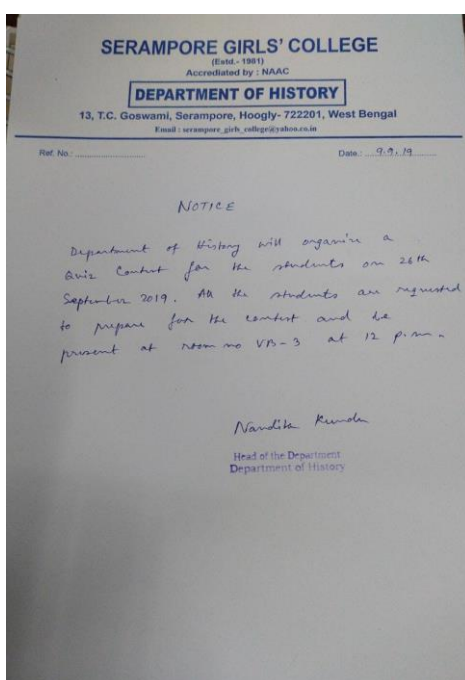 SERAMPORE GIRLS' COLLEGE
(Estd.- 1981)
Accrediated by : NAAC
DEPARTMENT OF HISTORY
13, T.C. Goswami, Serampore, Hoogly- 722201, West Bengal
Email : serampore_girls_college@yahoo.co.in
Ref. No.: ............................ Date.: ....9.9.19..........
NOTICE
Department of History will organise a
Quiz Contest for the students on 26th
September 2019. All the students are requested
to prepare for the contest and be
present at room no VB-3 at 12 p.m.
Nandita Kundu
Head of the Department
Department of History